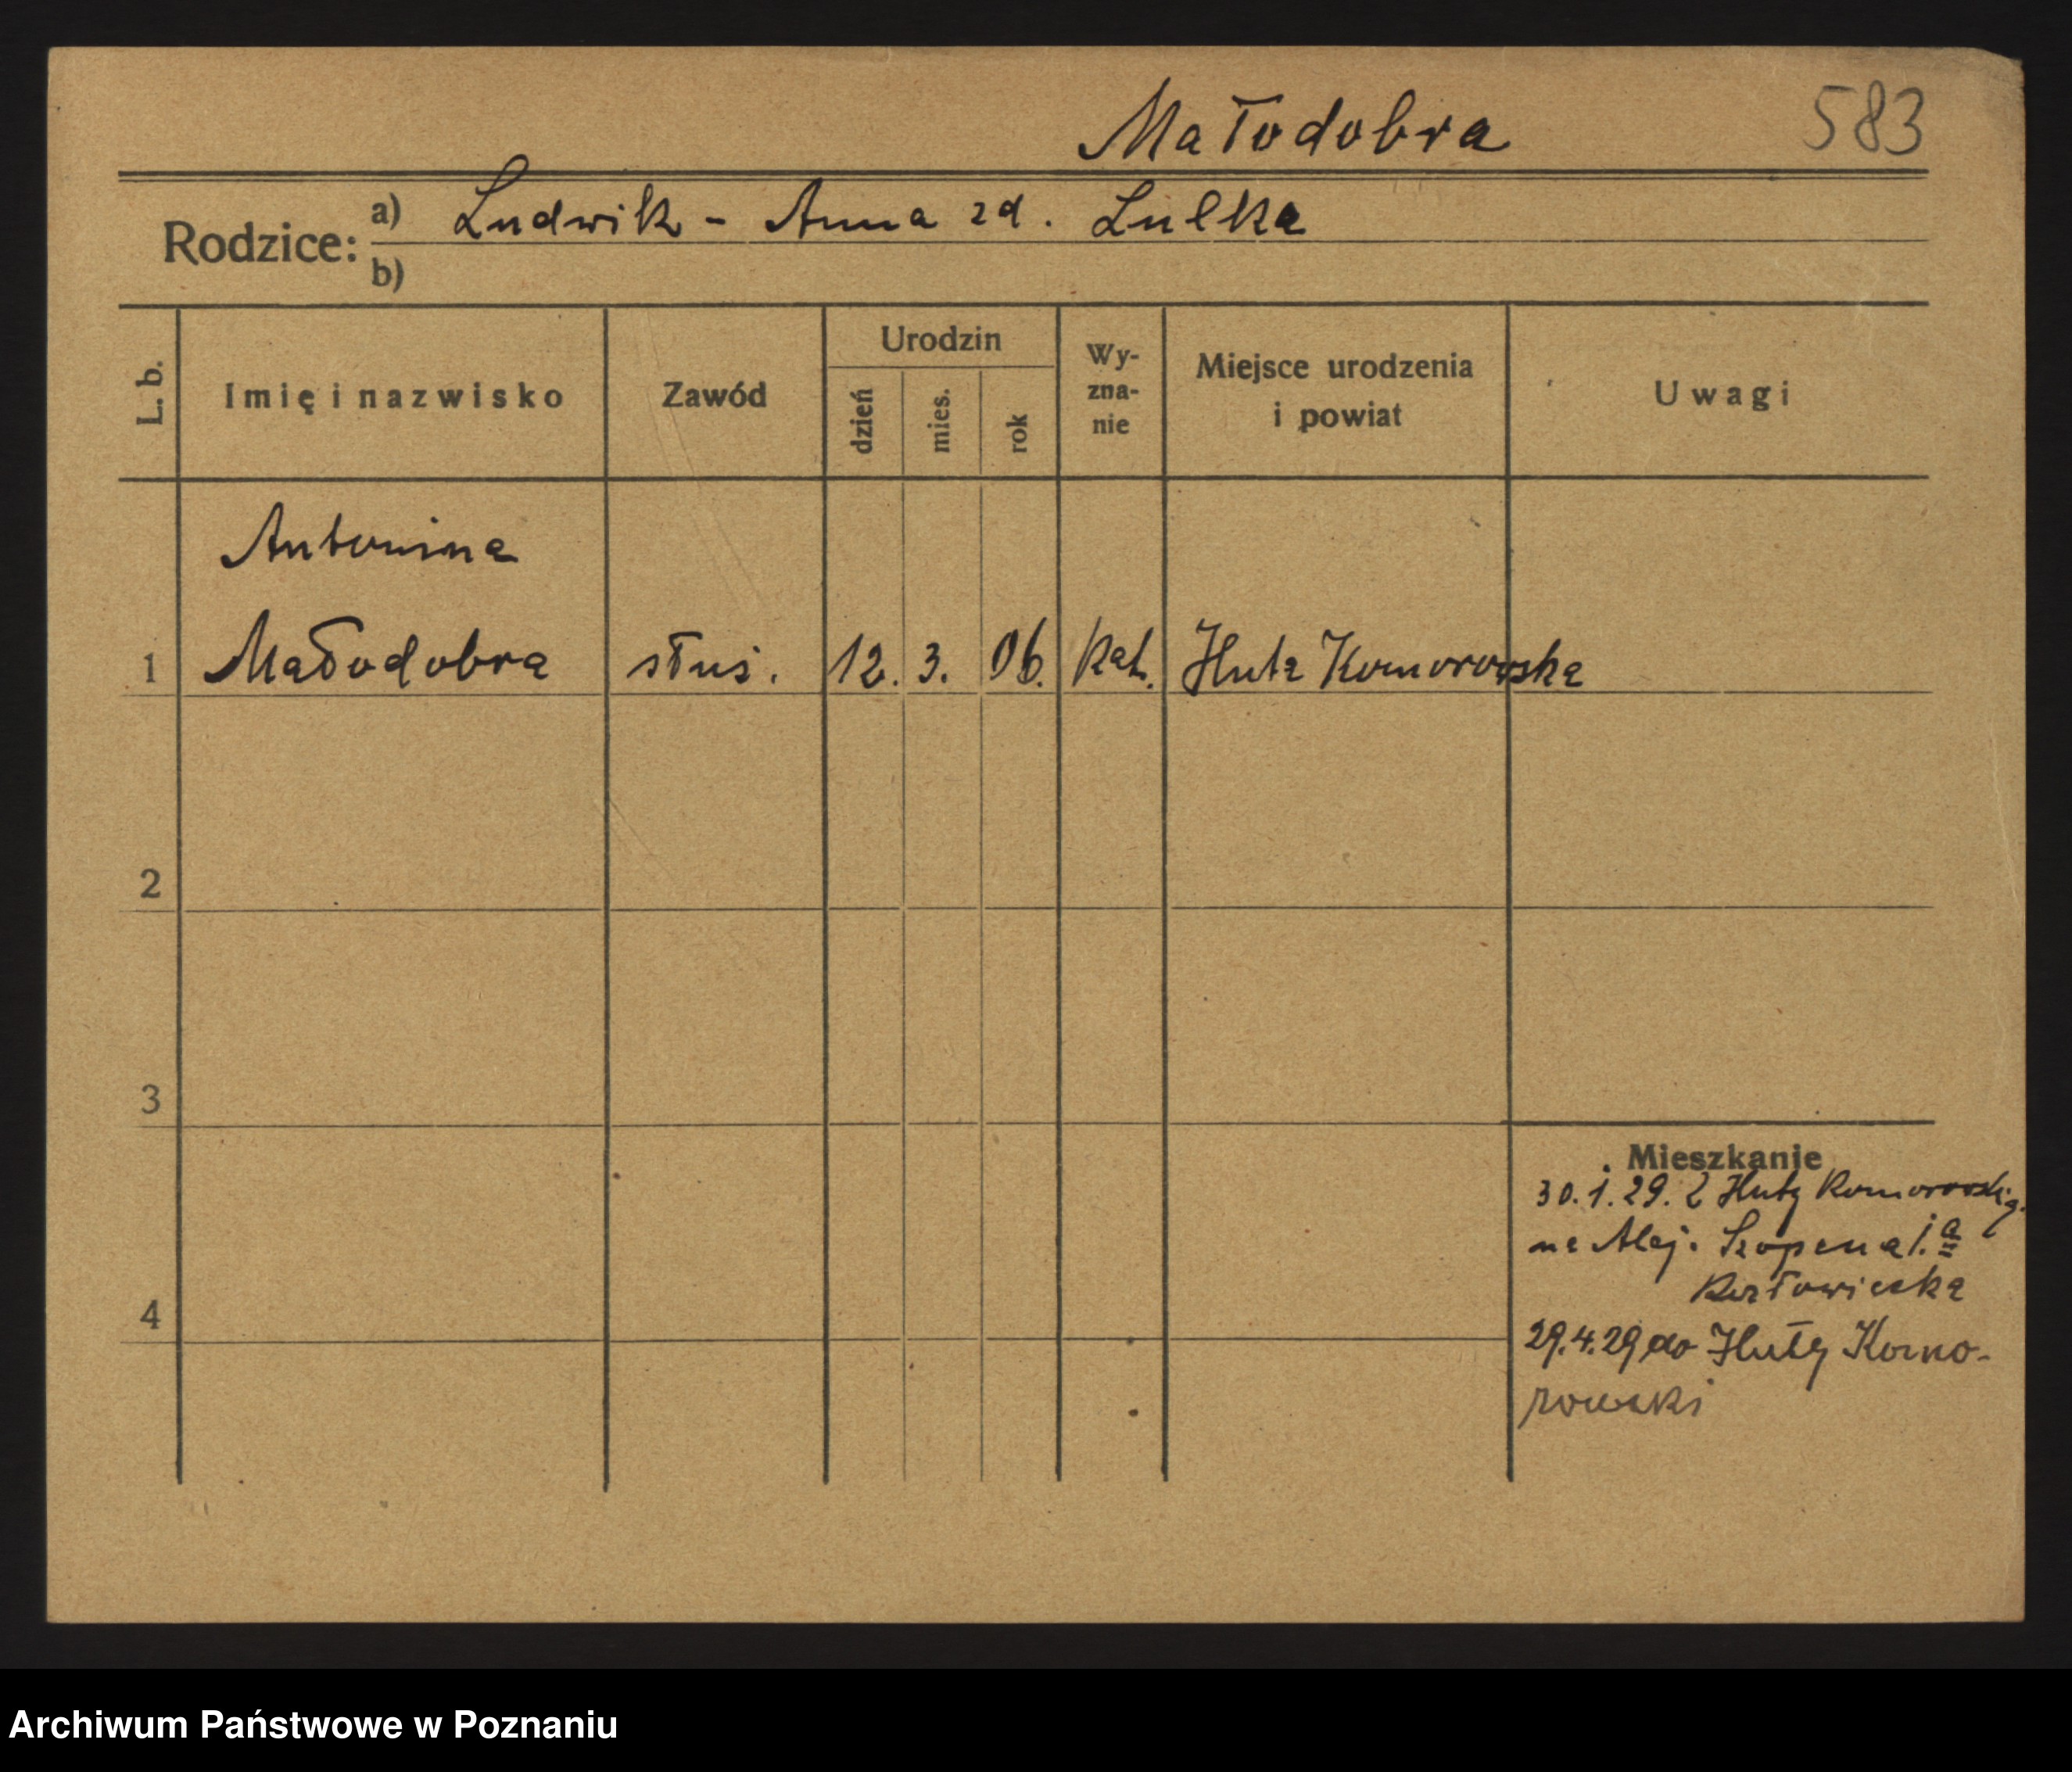 Małodobra 583
Rodzice: a) Ludwik - Anna zd. Lulka
b)
L. b. Imię i nazwisko Zawód Urodzin dzień mies. rok Wy-zna-nie Miejsce urodzenia i powiat Uwagi
Antonina
1 Małodobra służ. 12. 3. 06. Kat. Huta Komorowska
2
3
Mieszkanie
30.1.29. z Huty Komorowskiej
na Alej. Szopena 1.a
Kozłowiecka
4
29.4.29 do Huty Komo-
rowski
Archiwum Państwowe w Poznaniu